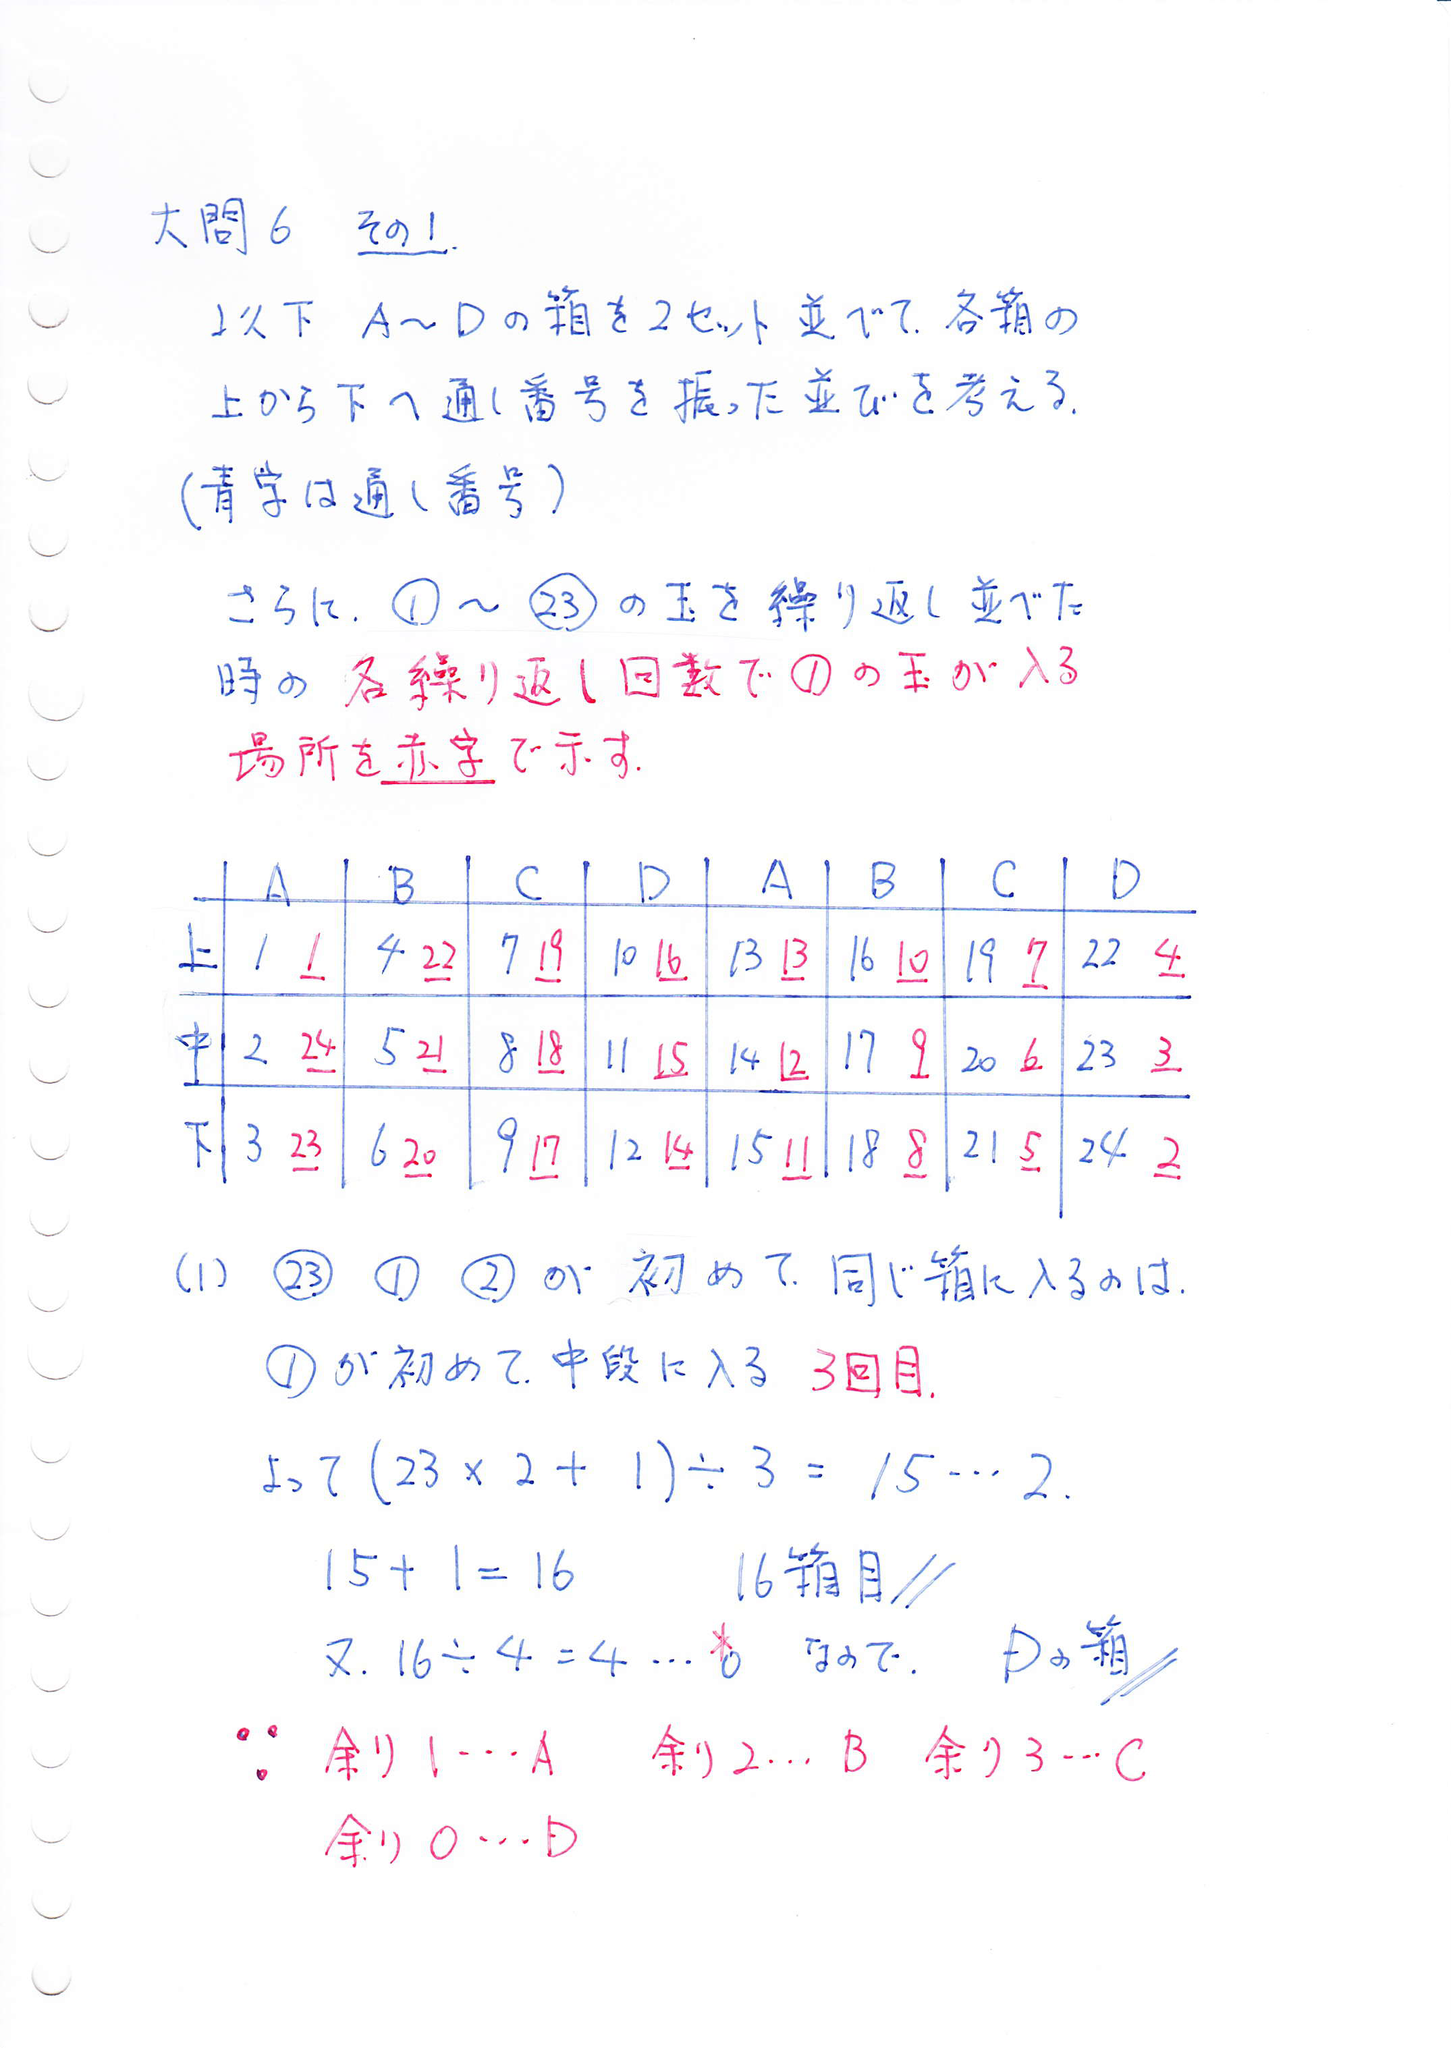 大問6 その1.
以下 A〜Dの箱を2セット並べて、各箱の
上から下へ通し番号を振った並びを考える.
(青字は通し番号)
さらに、①〜㉓の玉を繰り返し並べた
時の各繰り返し回数で①の玉が入る
場所を赤字で示す.
A B C D A B C D
上 1 1 4 22 7 19 10 16 13 13 16 10 19 7 22 4
中 2 24 5 21 8 18 11 15 14 12 17 9 20 6 23 3
下 3 23 6 20 9 17 12 14 15 11 18 8 21 5 24 2
(1) ㉓ ① ② が 初めて、同じ箱に入るのは.
①が初めて、中段に入る 3回目.
よって (23 × 2 + 1) ÷ 3 = 15 … 2.
15 + 1 = 16 16箱目//
又、16 ÷ 4 = 4 … 0* なので、 Dの箱//
∵ 余り1…A 余り2…B 余り3…C
余り0…D